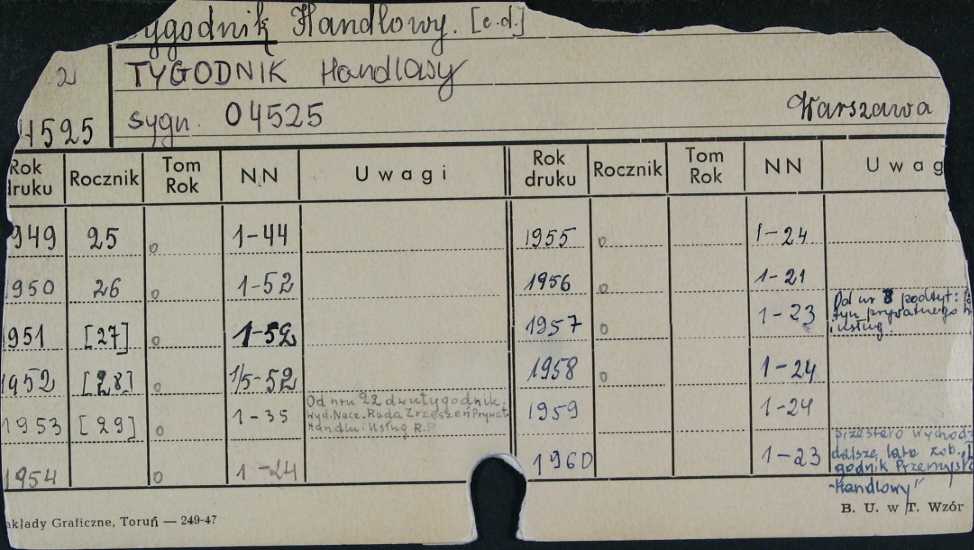 Tygodnik Handlowy. [c.d.]
2
TYGODNIK Handlowy
4525 sygn. 04525 Warszawa
Rok druku Rocznik Tom Rok NN Uwagi Rok druku Rocznik Tom Rok NN Uwag
949 25 o 1-44 1955 o 1-24
1950 26 o 1-52 1956 o 1-21
1951 [27] o 1-52 1957 o 1-23 Od nr 8 podtyt:
prywatnego
i usług.
1952 [28] o 1/5-52 1958 o 1-24
1953 [29] o 1-35 Od nru 22 dwutygodnik. 1959 1-24
Wyd. Nacz. Rada Zrzeszeń Prywat
Handlu i Usług R.P.
1954 o 1-24 1960 1-23 przestało wychodz
dalsze lata zob. „
godnik Przemysł
-Handlowy"
akłady Graficzne, Toruń — 249-47 B. U. w T. Wzór